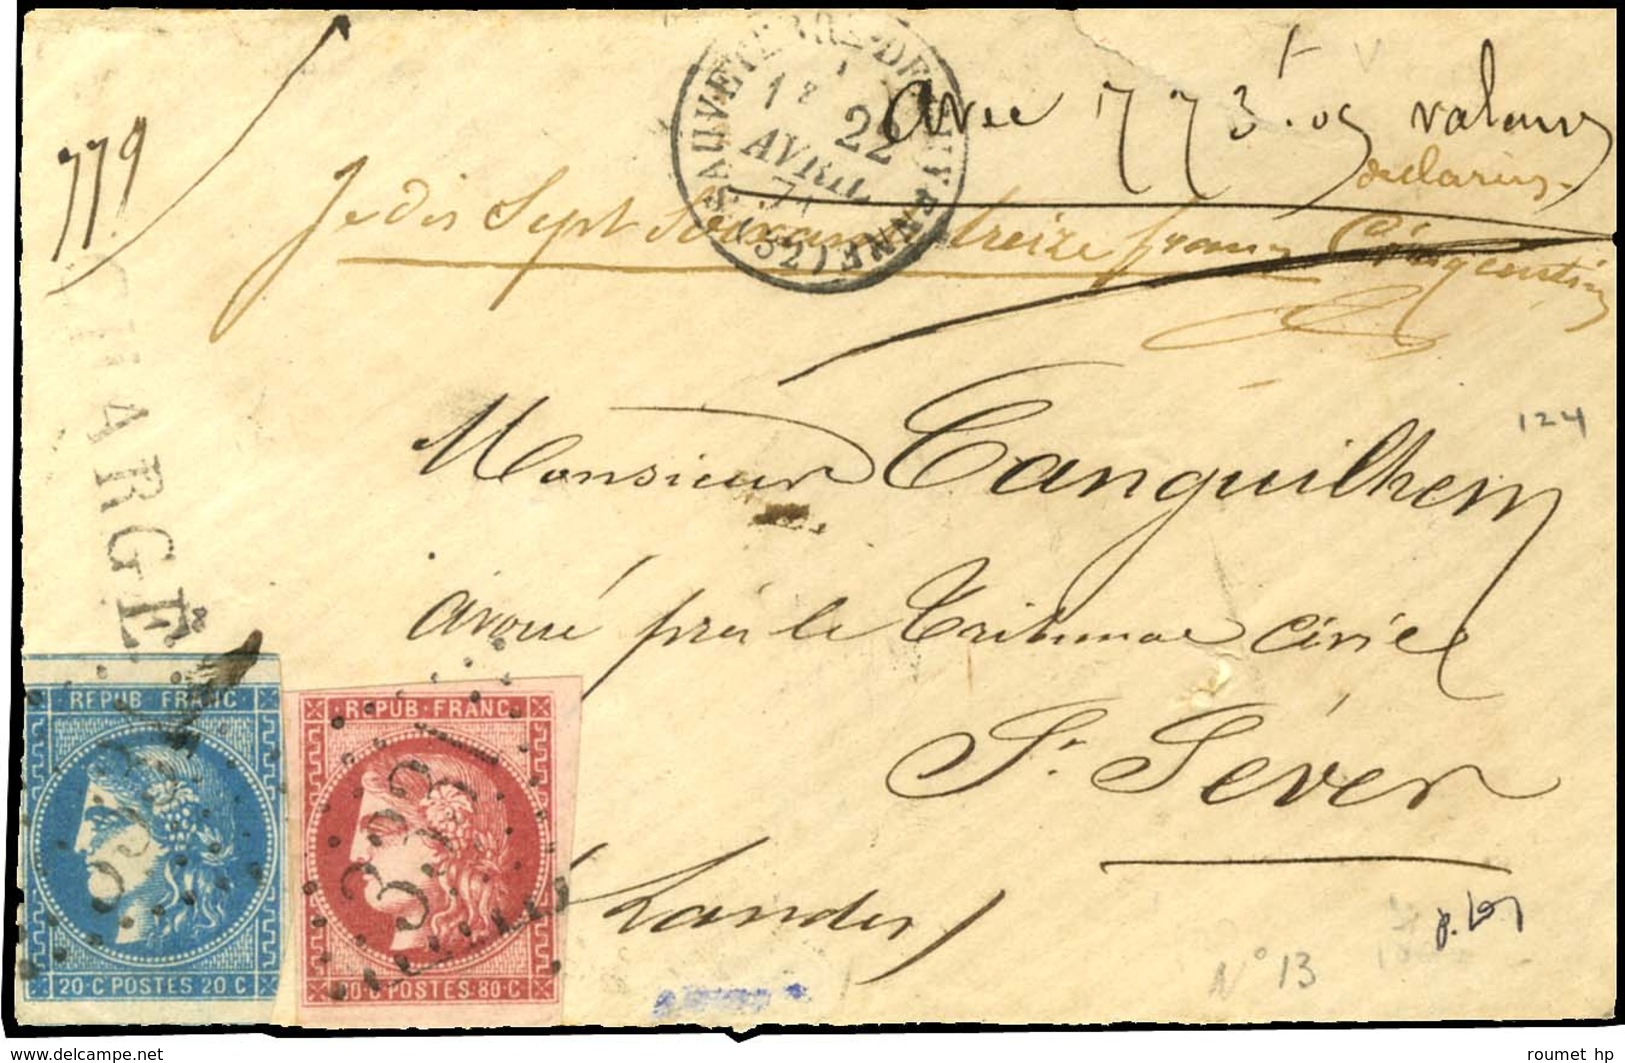 779
avec 773f.05 valeurs
déclarées.
SAUVETERRE-DE-GUYENNE (32)
1E
22
AVRIL
71
Je dis Sept Soixante treize francs Cinq centimes
CHARGÉ
Monsieur Tanguilhem
124
avoué près le Tribunal Civil
St. Séver
(Landes)
REPUB FRANC
20·C POSTES 20·C
REPUB·FRANC
80·C POSTES·80·C
3331
N° 13
www.delcampe.net
roumet hp